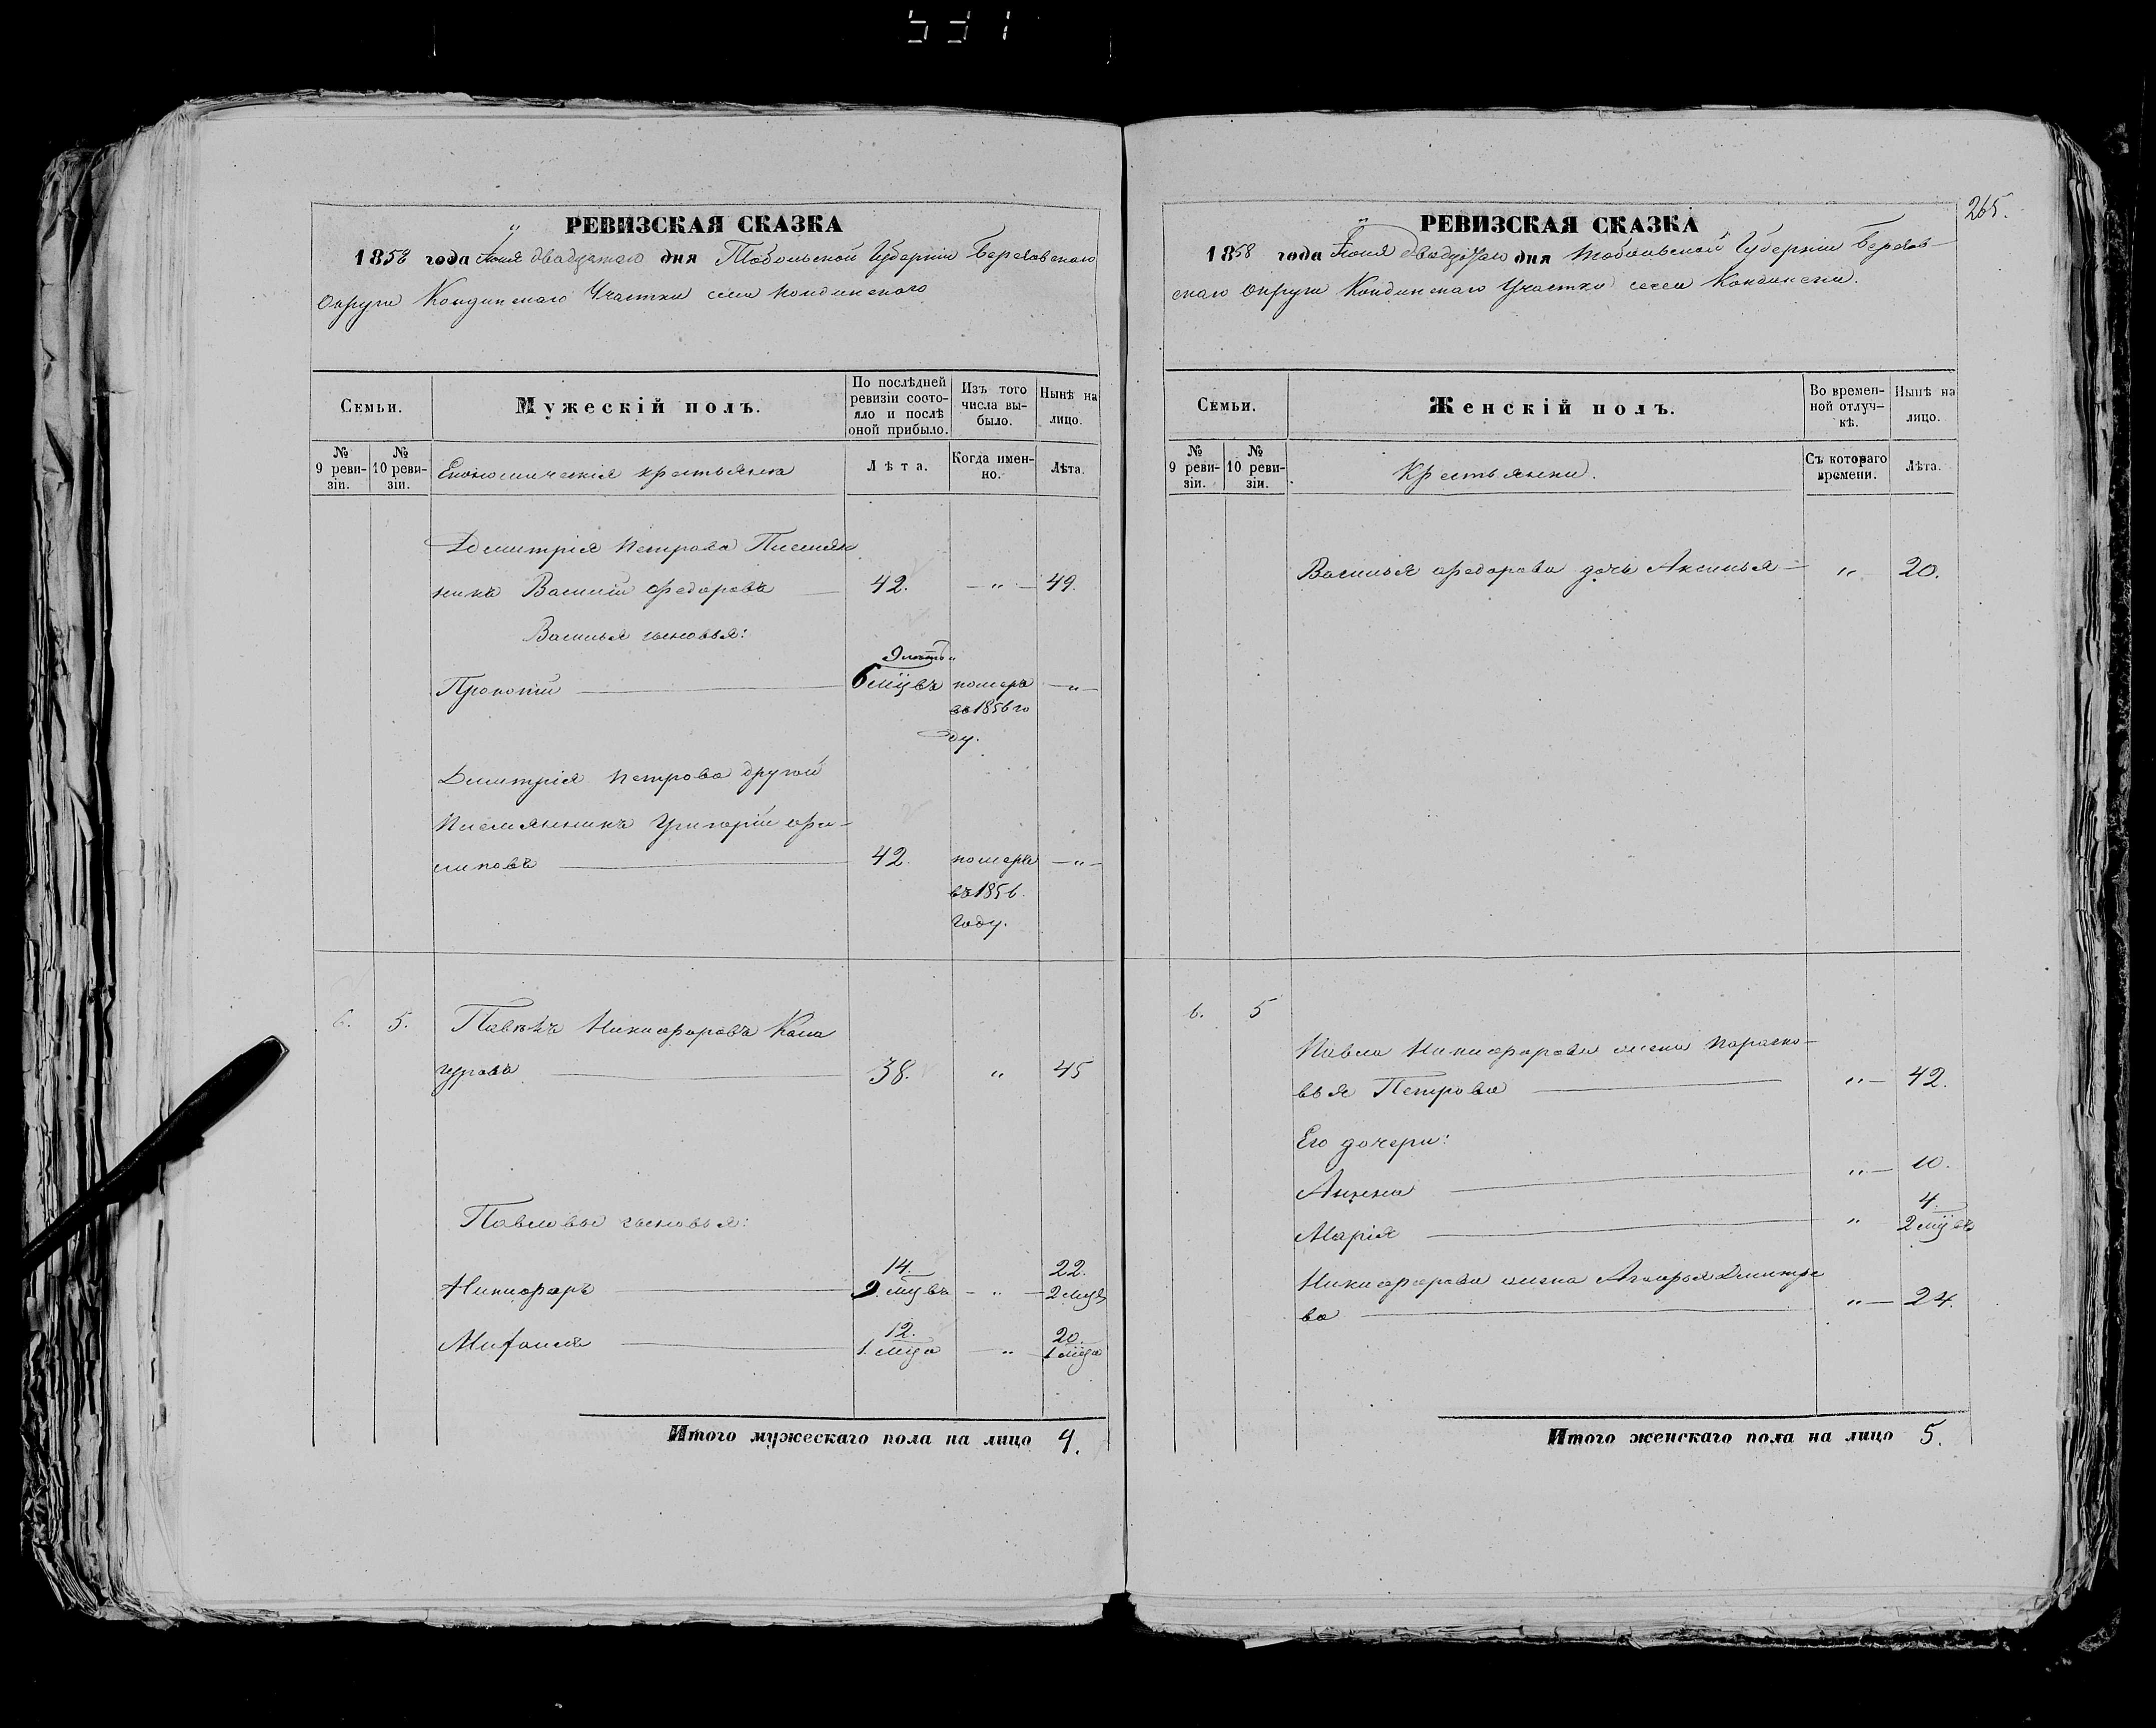 531
РЕВИЗСКАЯ СКАЗКА
1858 года Іюня двадцятого дня Тобольской Губерніи Березовскаго
Округи Кондинскаго Участка села Кондинского
Семьи.
Мужескій полъ.
По послѣдней ревизіи состояло и послѣ оной прибыло.
Изъ того числа выбыло.
Нынѣ на лицо.
№ 9 ревизіи.
№ 10 ревизіи.
Економическія крестьяна
Лѣта.
Когда именно.
Лѣта.
Дмитрія Петрова Племян
никъ Василій Федоровъ 42. — " — 49.
Василья сыновья:
Прокопій 6 м҃цвъ померъ — " —
въ 1856 го
ду.
Дмитрія Петрова другой
Племянникъ Григорій Фи-
липовъ 42. померъ — " —
въ 1856.
году.
6. 5. Павелъ Никифоровъ Кала
чуровъ 38. " 45
Павловы сыновья:
14. 22.
Никифоръ 9. м҃цвъ — " — 2 м҃цв
12. 20.
Михаилъ 1. м҃ца — " — 1 м҃ца
Итого мужескаго пола на лицо 4.
265.
РЕВИЗСКАЯ СКАЗКА
1858 года Іюня двадцятаго дня Тобольской Губерніи Березов-
скаго Округи Кондинскаго Участка села Кондинска.
Семьи.
Женскій полъ.
Во временной отлучкѣ.
Нынѣ на лицо.
№ 9 ревизіи.
№ 10 ревизіи.
Крестьянки.
Съ котораго времени.
Лѣта.
Василья Федорова дочь Аксинья — " — 20.
6. 5
Павла Никифорова жена Параско-
вья Петрова " — 42.
Его дочери:
Анна " — 10.
4.
Марія " 2 м҃цвъ
Никифорова жена Дмитре
ва " — 24.
Итого женскаго пола на лицо 5.